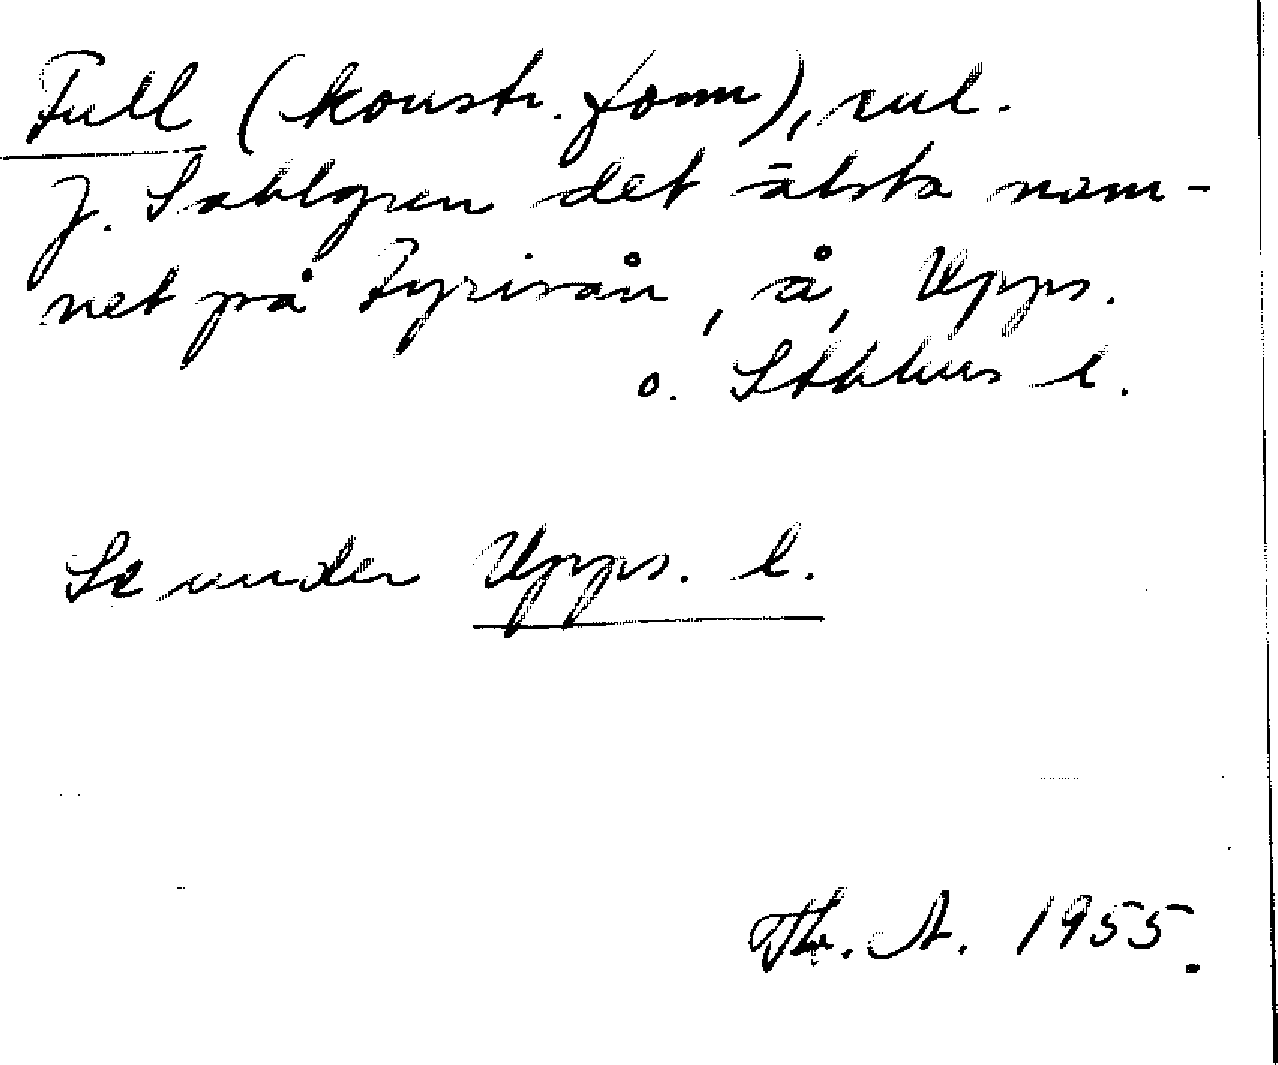 Full (konstr. form), enl.
J. Sahlgren det älsta nam-
net på Fyrisån, å, Upps.
o. Sthlms l.
Se under Upps. l.
Th. A. 1955.